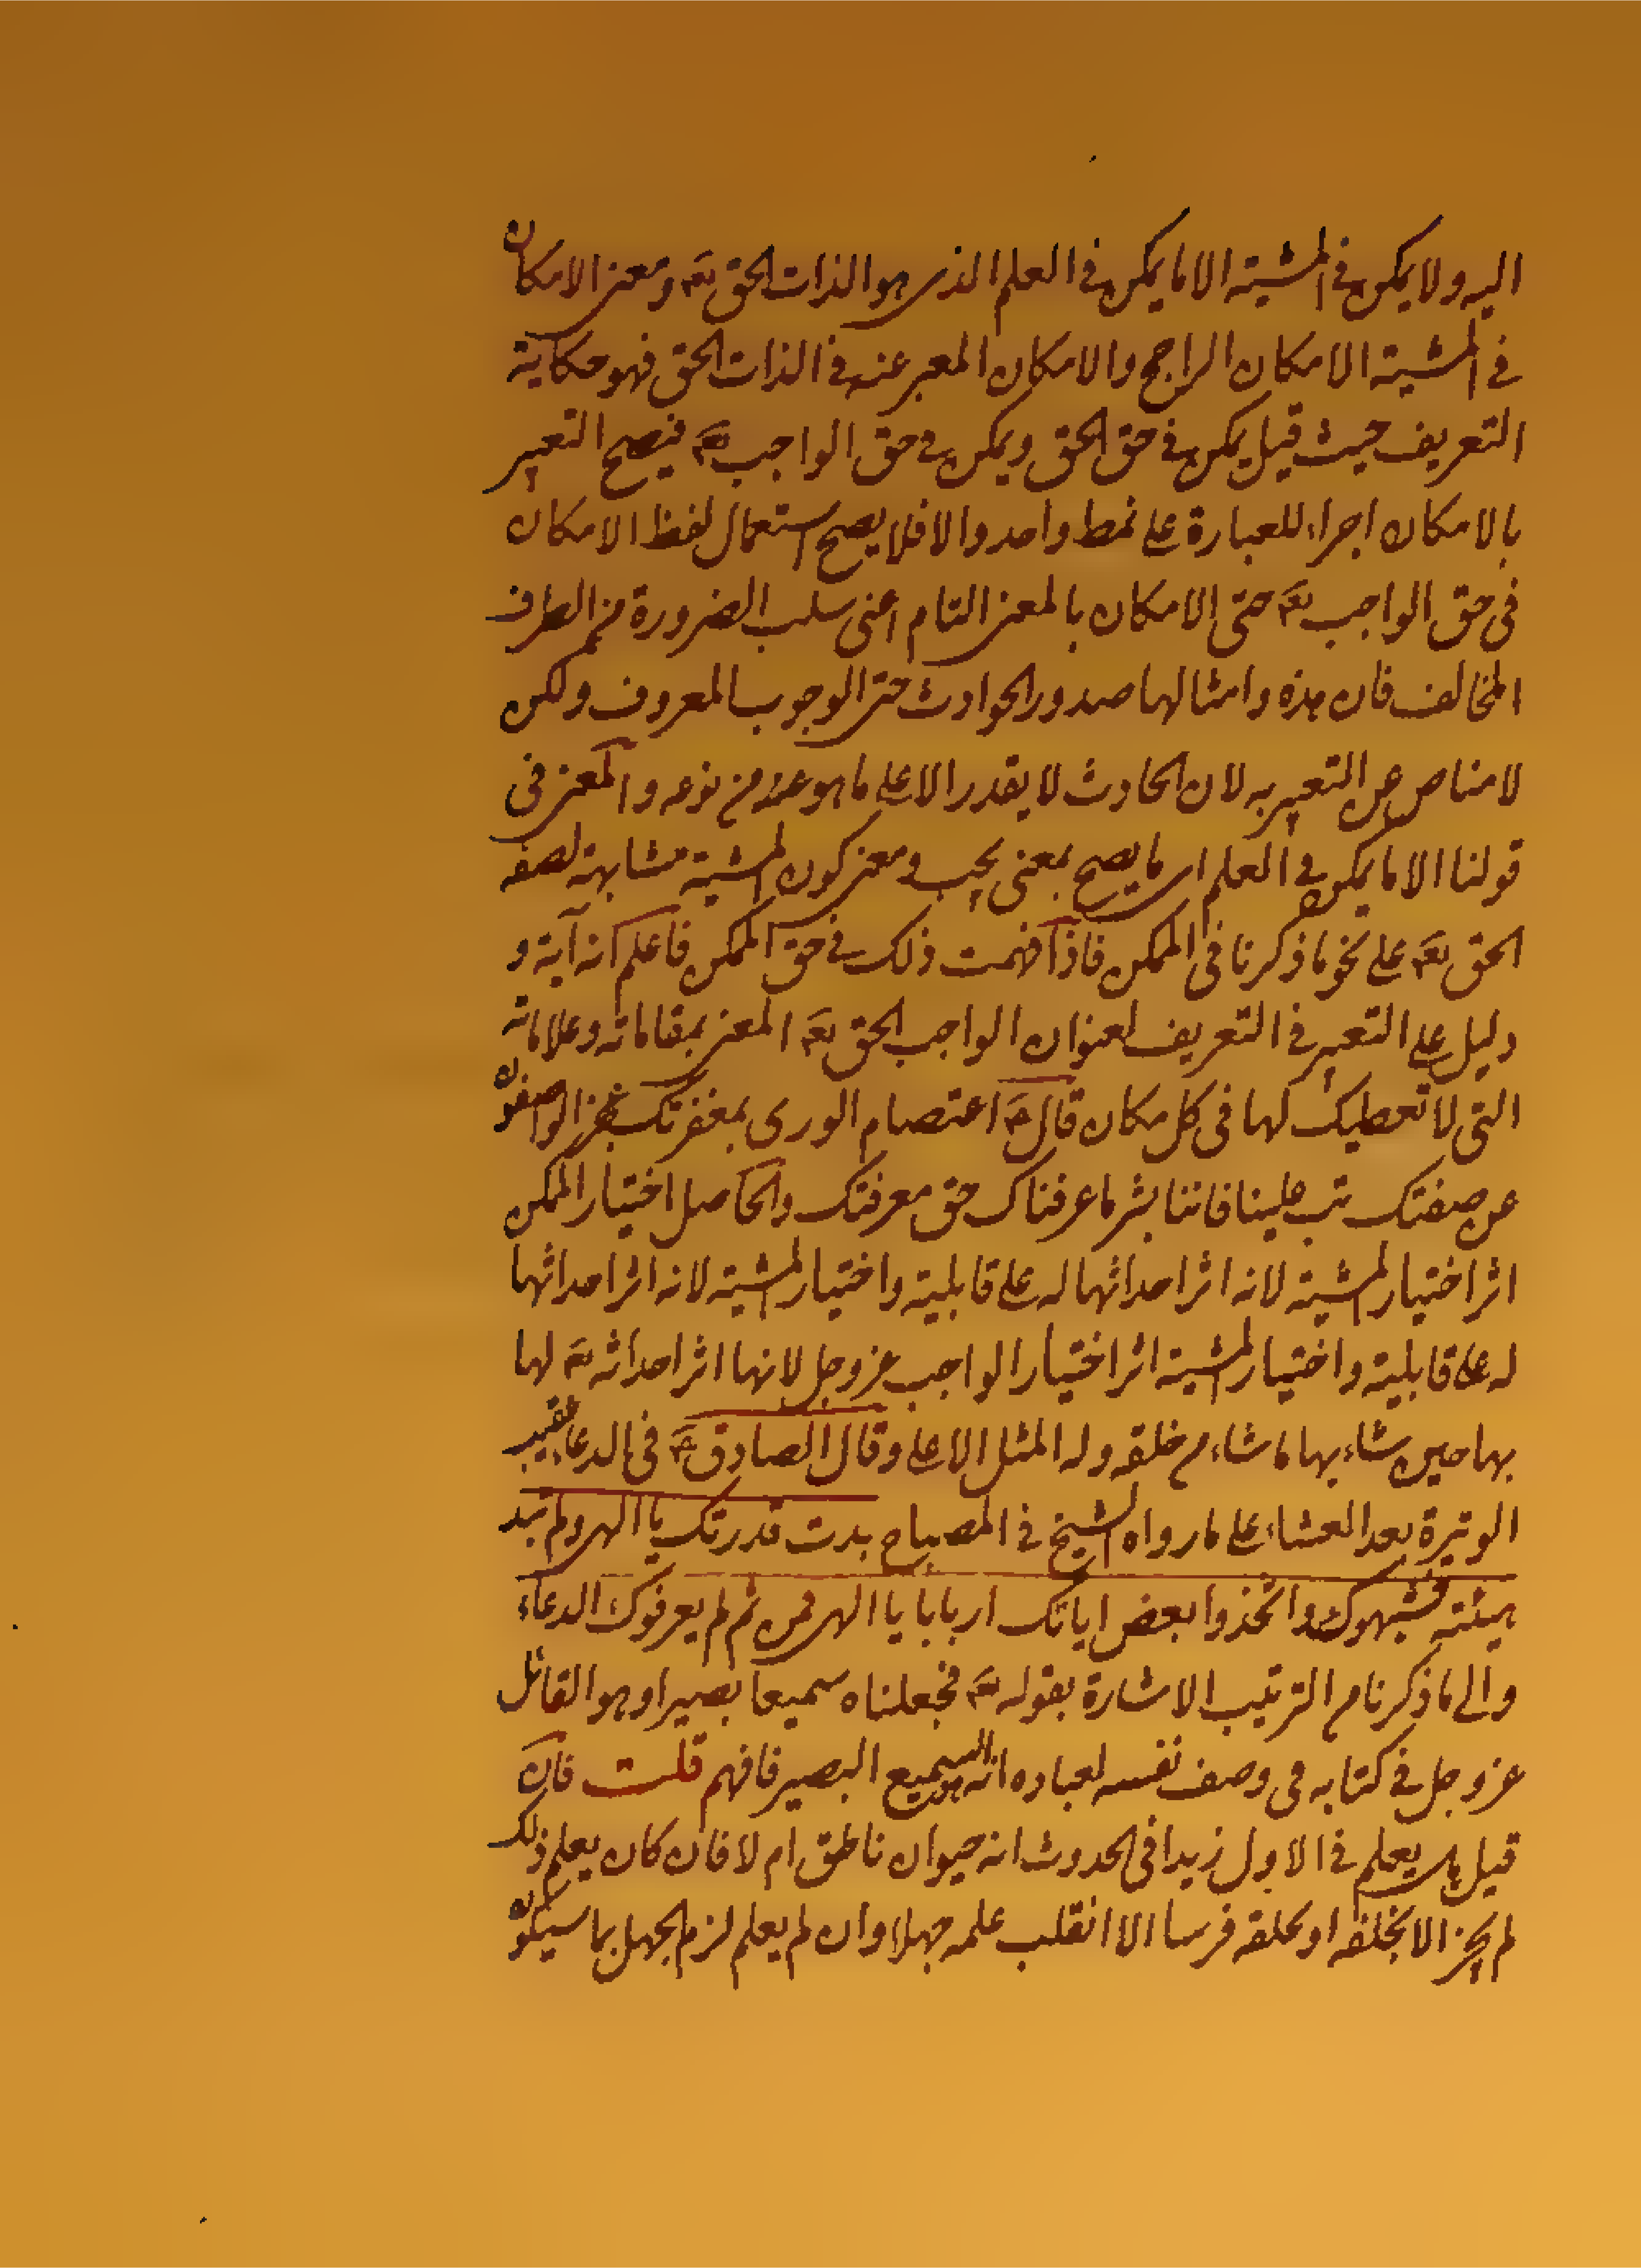 اليه ولا يمكن في المشية الا ما يمكن في العلم الذي هو الذات الحق تع ومعنى الامكان
في المشية الامكان الراجح والامكان المعبر عنه في الذات الحق فهو حكاية
التعريف حيث قيل يمكن في حق الحق ويمكن في حق الواجب تع فيصح التعبير
بالامكان اجراء للعبارة على نمط واحد والا فلا يصح استعمال لفظ الامكان
في حق الواجب تع حتى الامكان بالمعنى التام اعنى سلب الضرورة من الطرف
المخالف فان هذه وامثالها صدور الحوادث حتى الوجوب المعروف ولكن
لا مناص عن التعبير به لان الحادث لا يقدر الا على ما هو عنده من نوعه والمعنى في
قولنا الا ما يمكن في العلم اى ما يصح بمعنى يجب ومعنى كون المشية مشابهة لصفة
الحق تع على نحو ما ذكرنا في الممكن فاذا فهمت ذلك في حق الممكن فاعلم انه آية و
دليل على التعبير في التعريف لعنوان الواجب الحق تع المعنى بمقاماته وعلاماته
التي لا تعطيل لها في كل مكان قال ع اعتصام الورى بمغفرتك عجز الواصفون
عن صفتك تب علينا فاننا بشر ما عرفناك حق معرفتك والحاصل اختيار الممكن
اثر اختيار المشية لانه اثر احداثها له على قابليته واختيار المشية لانه اثر احداثها
له على قابليته واختيار المشية اثر اختيار الواجب عز وجل لانها اثر احداثه تع لها
بها حين شاء بها ما شاء من خلقه وله المثل الاعلى وقال الصادق ع في الدعا عقيب
الوتيرة بعد العشاء على ما رواه الشيخ في المصباح بدت قدرتك يا الهى ولم تبد
هيئة فشبهوك واتخذوا بعض اياتك اربابا يا الهى فمن ثم لم يعرفوك الدعاء
والى ما ذكرنا من الترتيب الاشارة بقوله تع فجعلناه سميعا بصيرا وهو القائل
عز وجل في كتابه في وصف نفسه لعباده انه هو السميع البصير فافهم قلت فان
قيل هل يعلم في الاول زيدا في الحدوث انه حيوان ناطق ام لا فان كان يعلم ذلك
لم يجز الا بخلقه او يخلقه فرسا الا انقلب علمه جهلا وان لم يعلم لزم الجهل بما سيكون